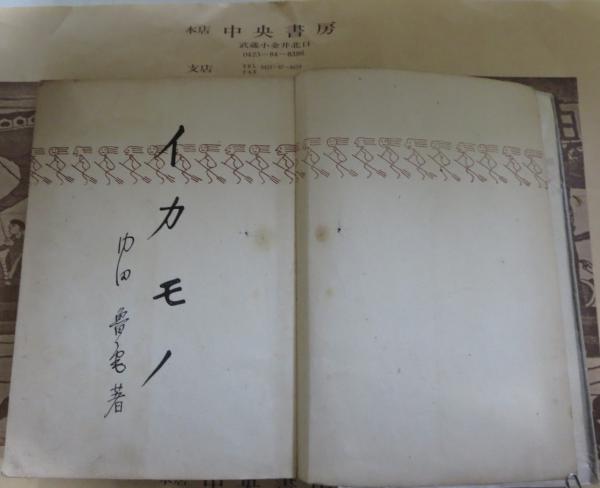 本店 中央書房
武蔵小金井北口
支店
イカモノ
内田 魯庵 著